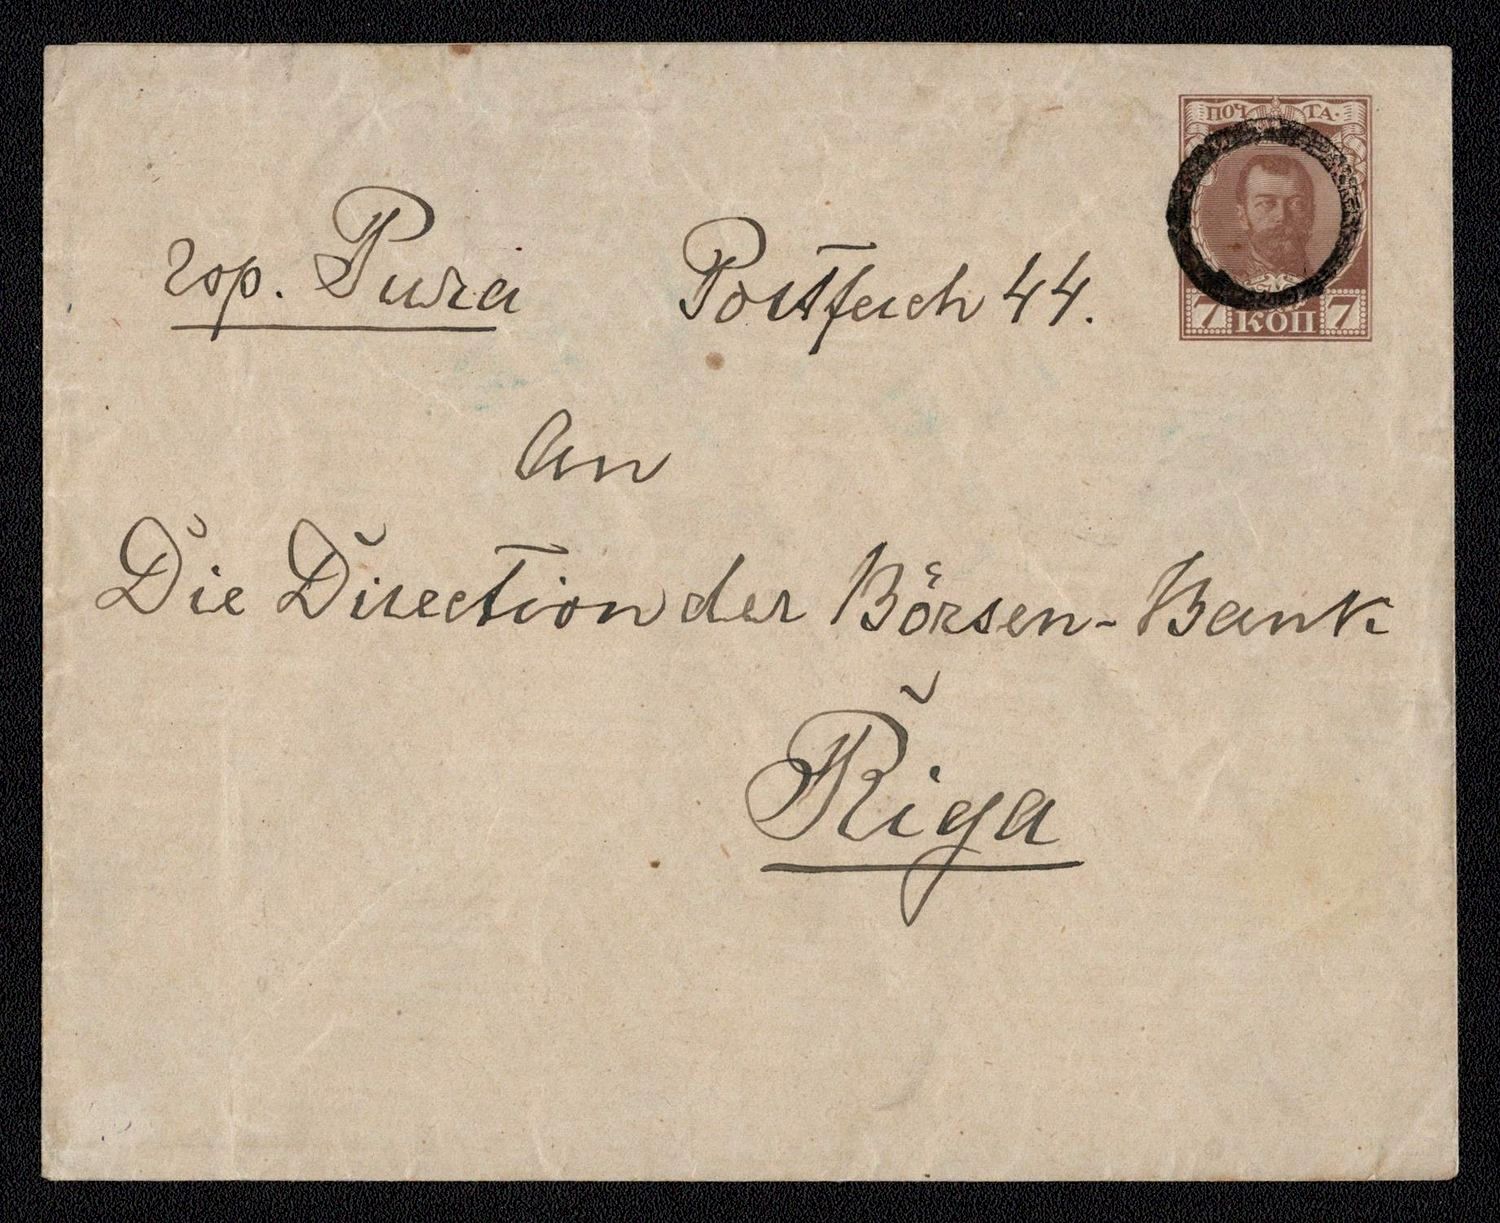 ПОЧТА.
7 КОП 7
гор. Рига Postfach 44.
An
Die Direction der Börsen-Bank
Riga